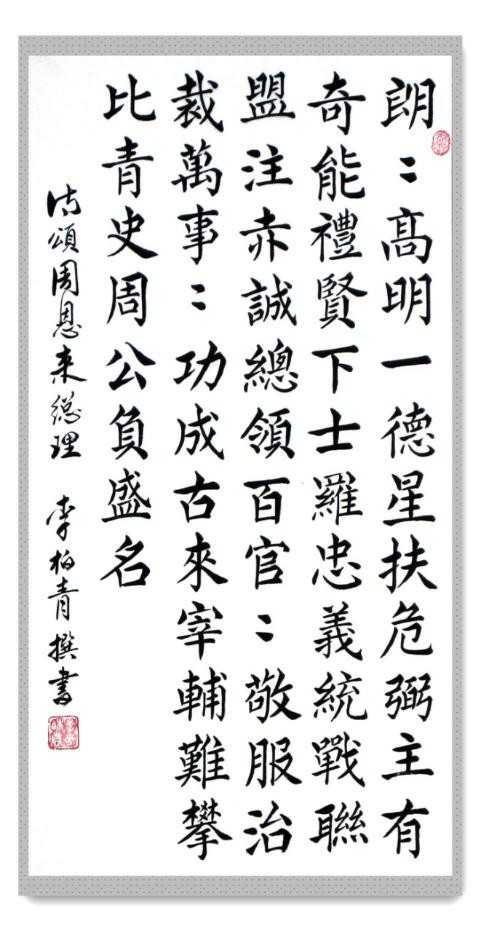 朗：高明一德星扶危弼主有
奇能禮賢下士羅忠義統戰聯
盟注赤誠總領百官：敬服治
裁萬事：功成古來宰輔難攀
比青史周公負盛名
诗頌周恩来総理 李柏青撰書